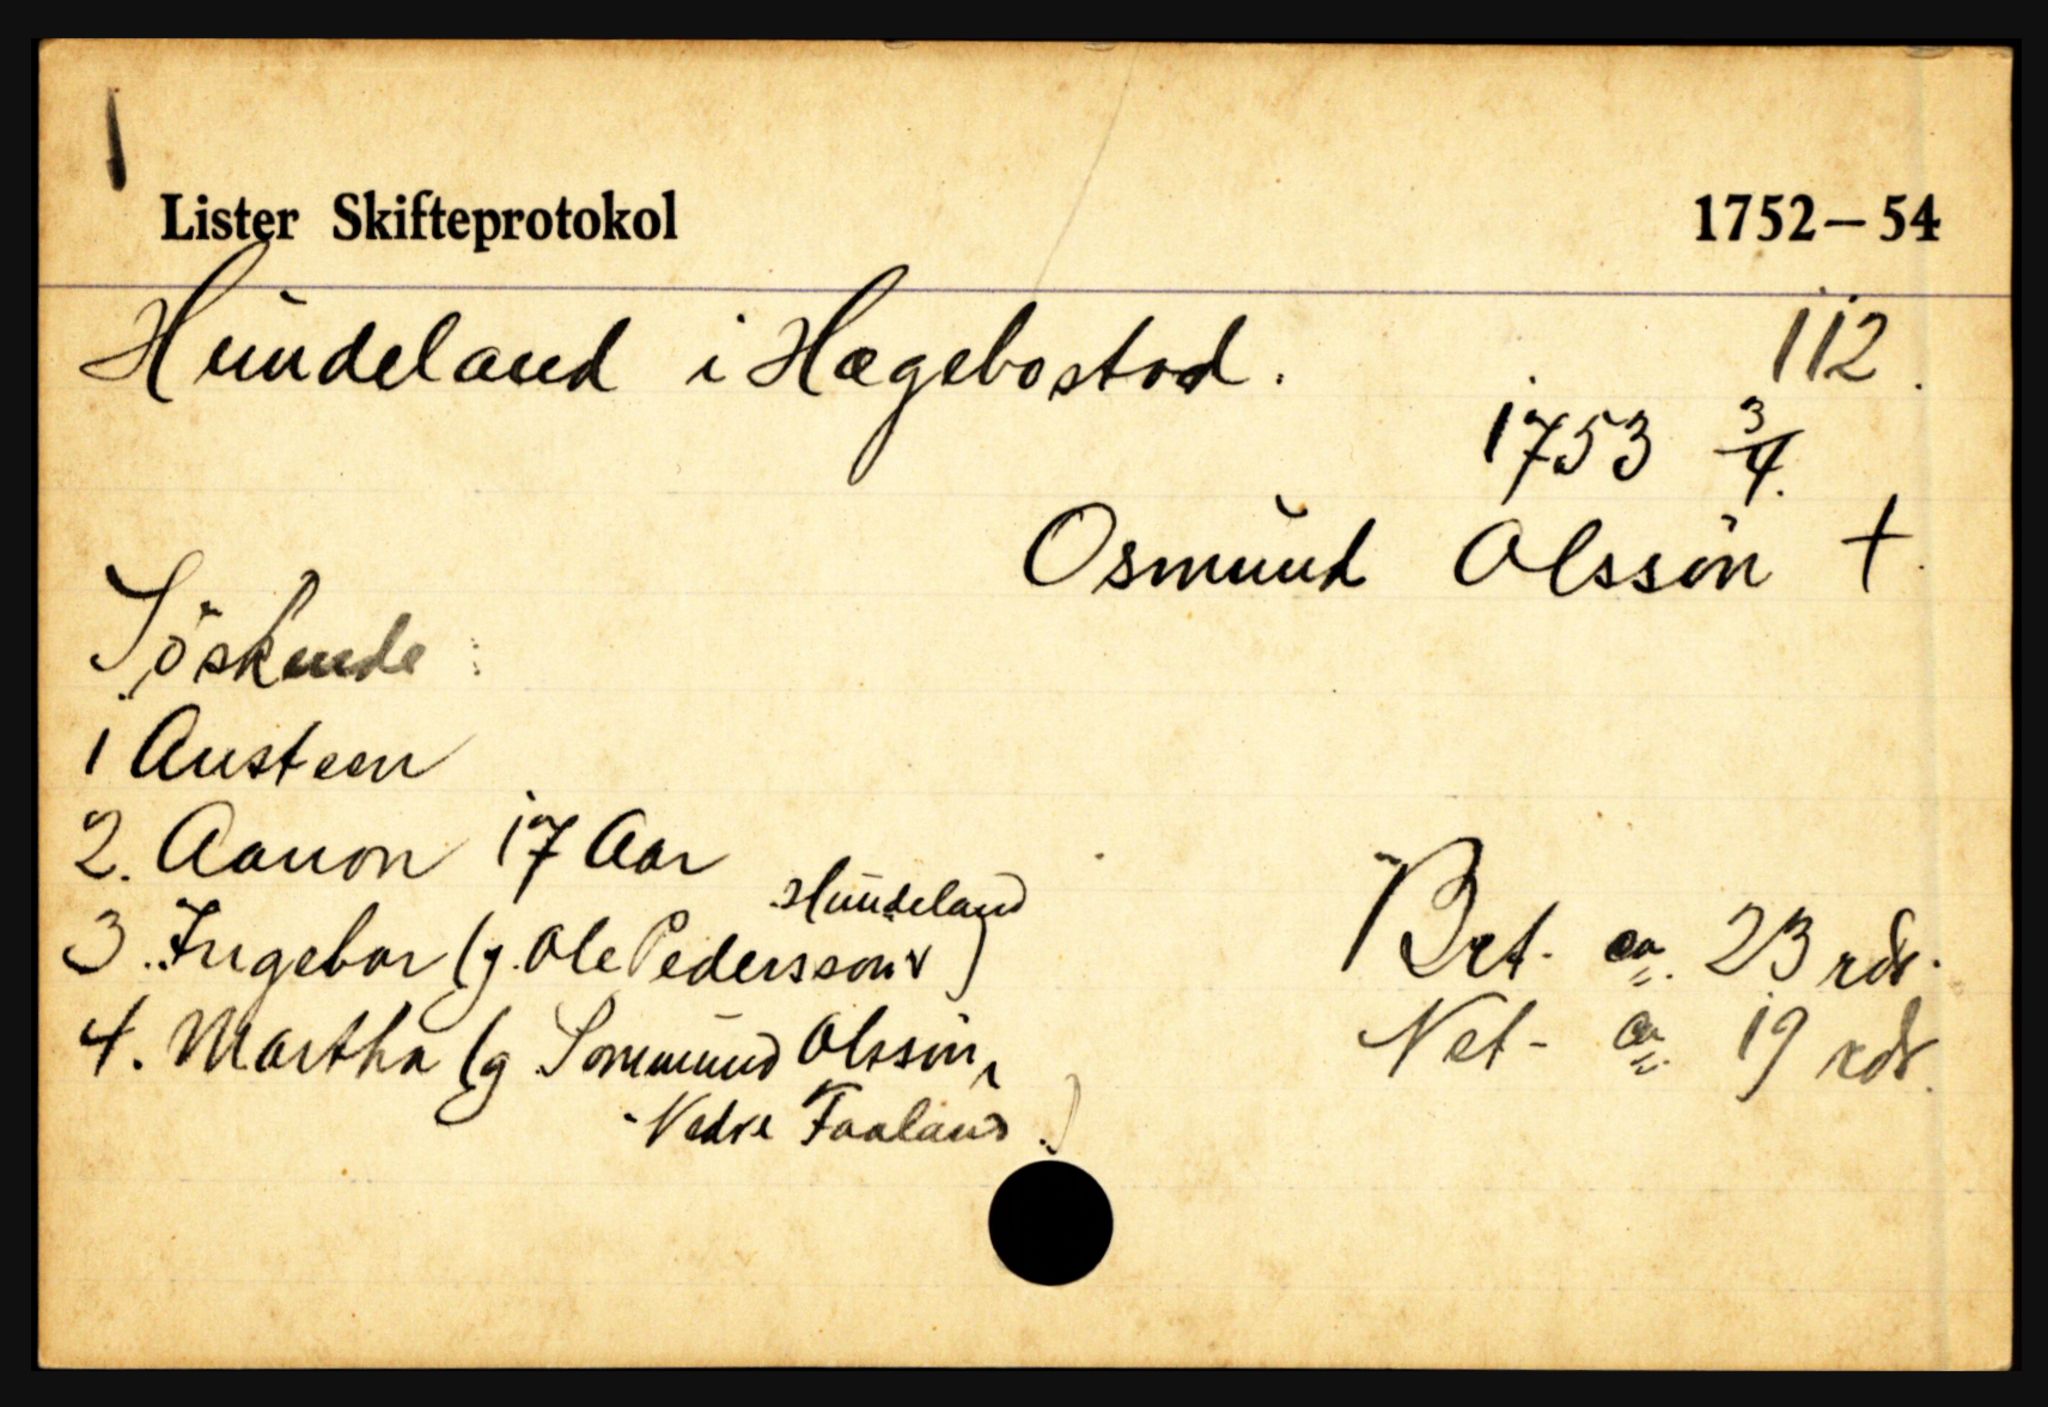 1
Lister Skifteprotokol 1752–54
Hundeland i Hægebostad. 112.
1753 3/4.
Osmund Olsson †.
Söskende:
1 Austeen
2. Aanon 17 Aar
3. Ingebor (g. Ole Pederssön Hundeland)
4. Martha (g. Sommund Olssön, Nedre Faaland.)
Brt. ca. 23 rdr.
Net - ca. 19 rdr.